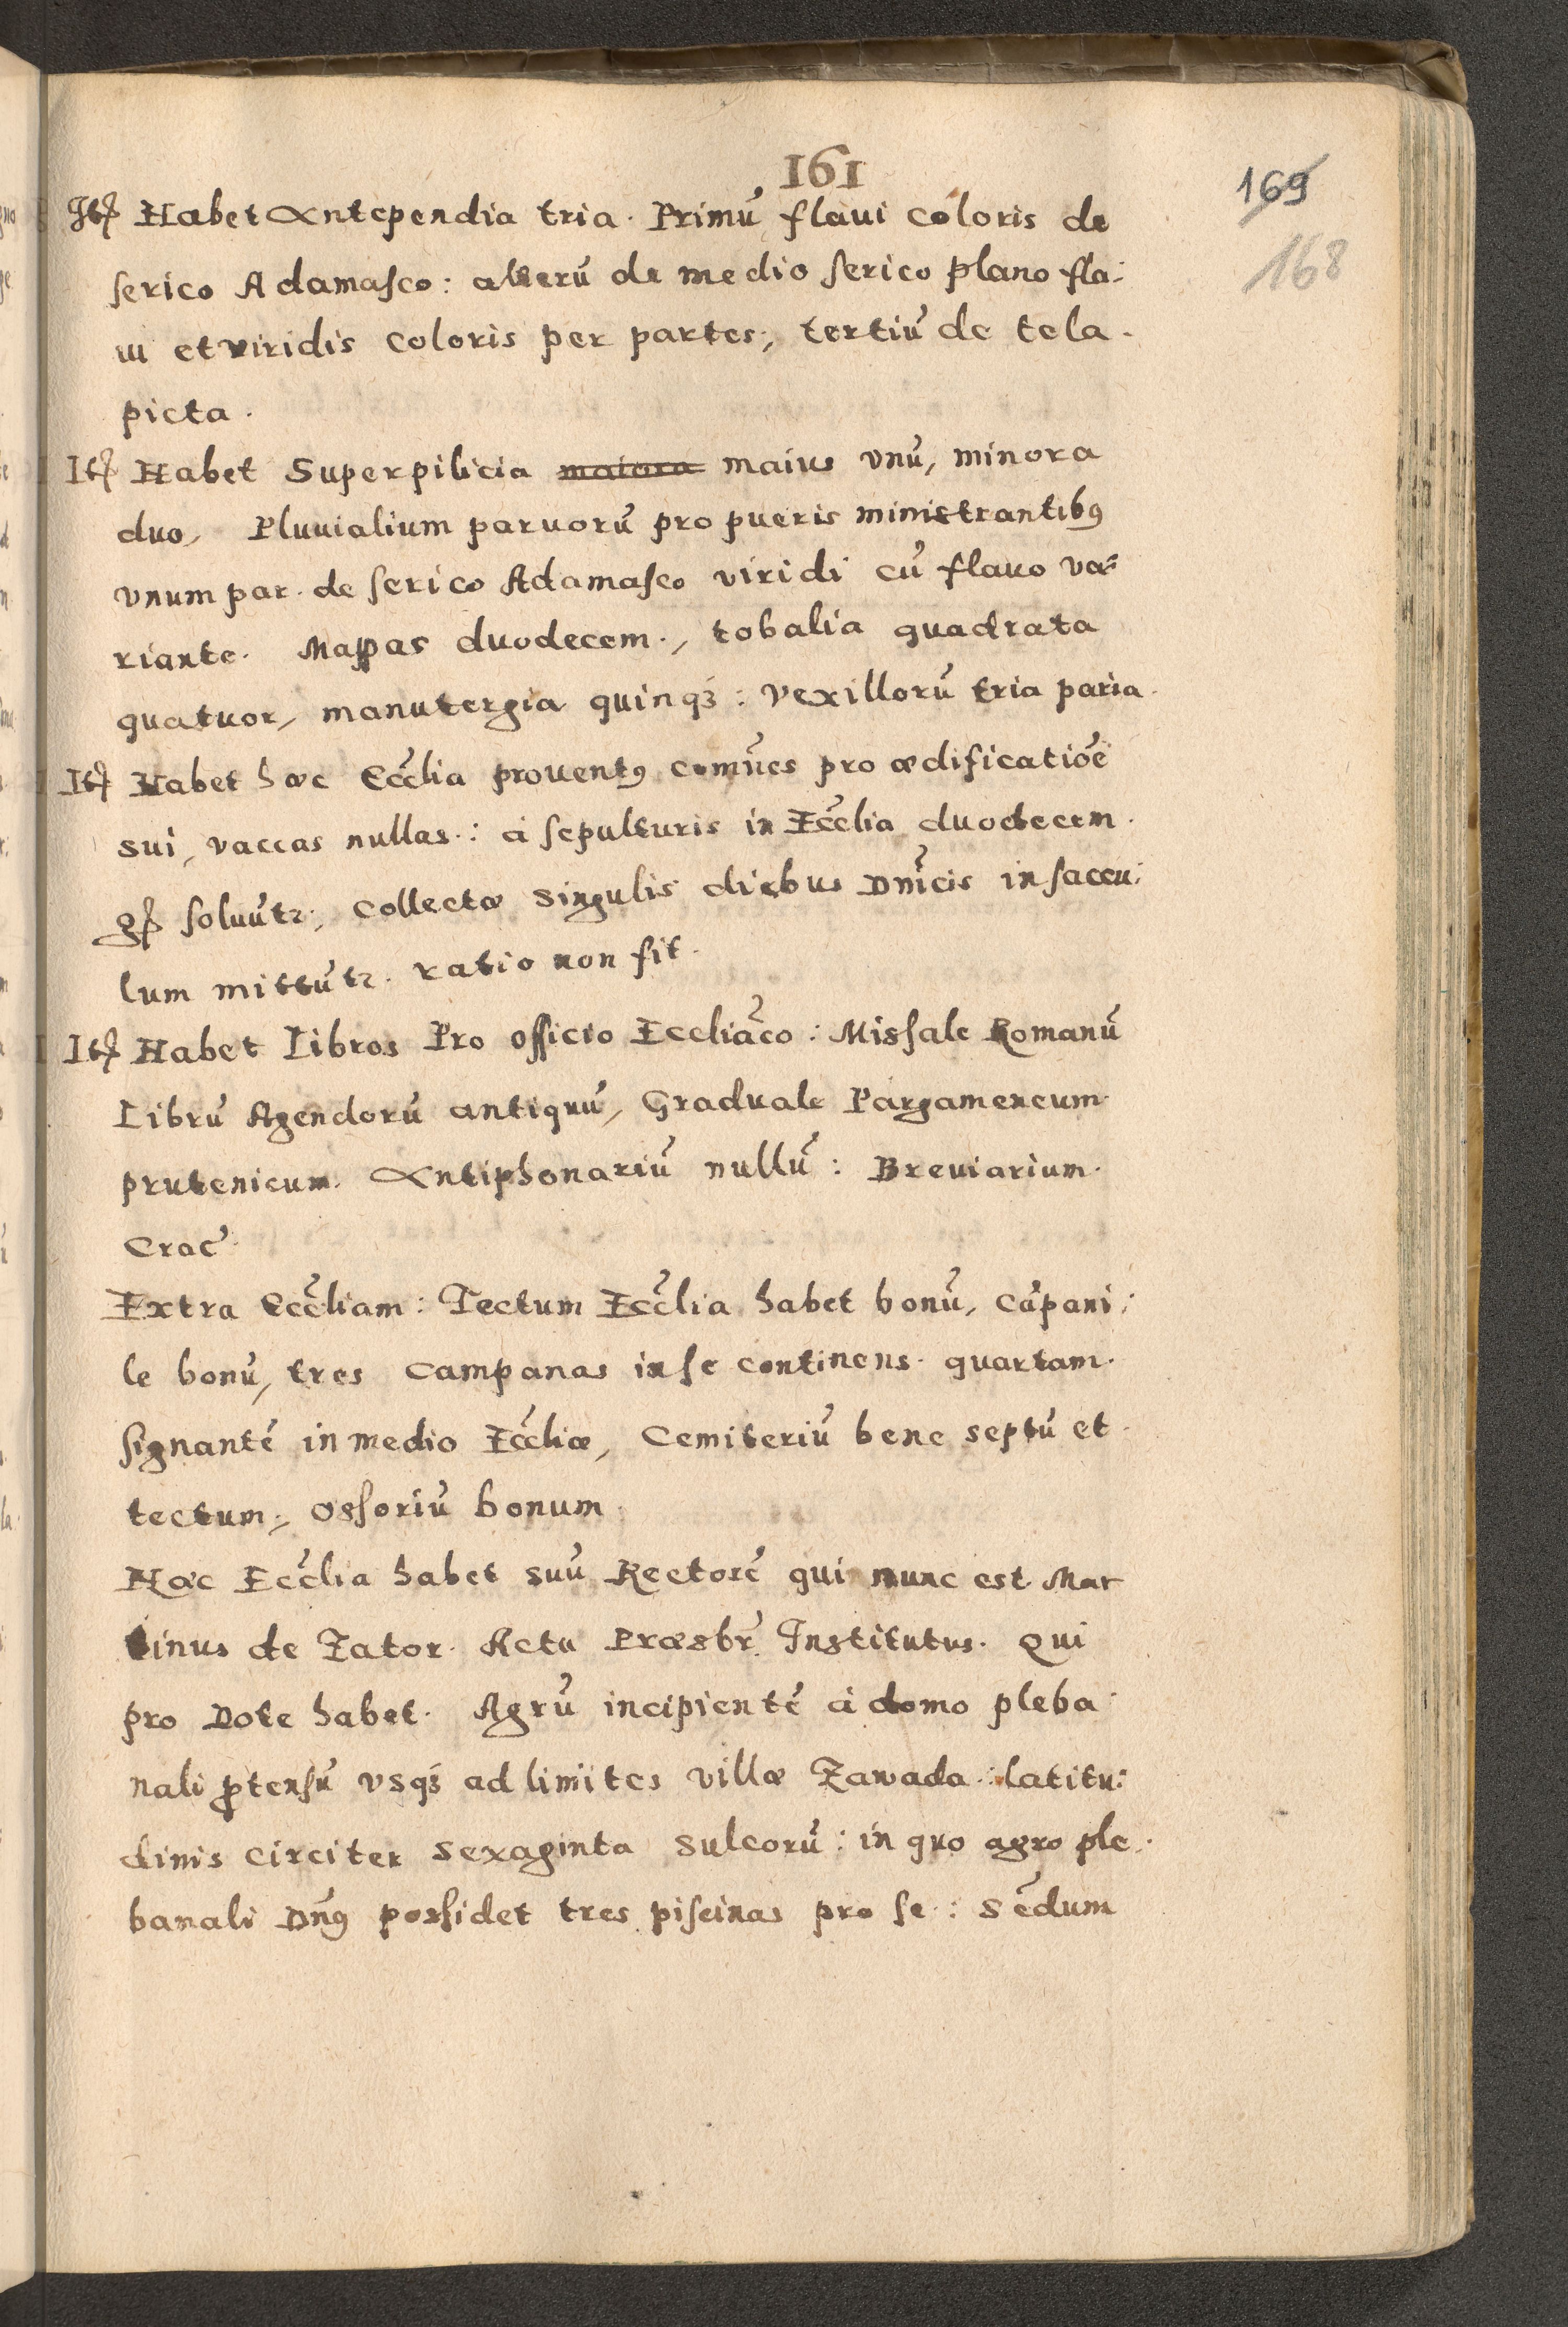 161
169
168
Itē Habet Antependia tria. Primū flaui coloris de
serico Adamasco: alterū de medio serico plano fla:
ui et viridis coloris per partes, tertiū de tela.
picta.
Itē Habet Superpilicia maiora maius vnū, minora
duo, Pluuialium paruorū pro pueris ministrantibꝰ
vnum par. de serico Adamasco viridi cū flauo va=
riante. Mappas duodecem., tobalia quadrata
quatuor, manutergia quinqꝫ: vexillorū tria paria.
Itē Habet hæc Eccĺia prouentꝰ comūes pro ædificatiōe
sui, vaccas nullas.: à sepulturis in Eccĺia duodecem.
gſ soluūtr; collectæ singulis diebus Dnīcis in saccu:
lum mittūtr. ratio non fit.
Itē Habet Libros Pro officio Eccliāco: Missale Romanū
Librū Agendorū antiquū, Graduale Pargameneum
prutenicum. Antiphonariū nullū: Breuiarium.
Crac̄
Extra Eccĺiam: Tectum Eccĺia habet bonū, cāpani:
le bonū, tres campanas in se continens. quartam.
signantē in medio Eccĺiæ, Cemiteriū bene septū et.
tectum, ossoriū bonum.
Hæc Eccĺia habet suū Rectorē qui nunc est Mar
tinus de Zator. Actu Præsbr̄. Institutus. Qui
pro Dote habet. Agrū incipientē à domo pleba:
nali ꝓtensū vsqꝫ ad limites villæ Zawada.: latitu:
dinis circiter sexaginta sulcorū: in quo agro ple.
banali Dn̄ꝰ possidet tres piscinas pro se.: Sēdum